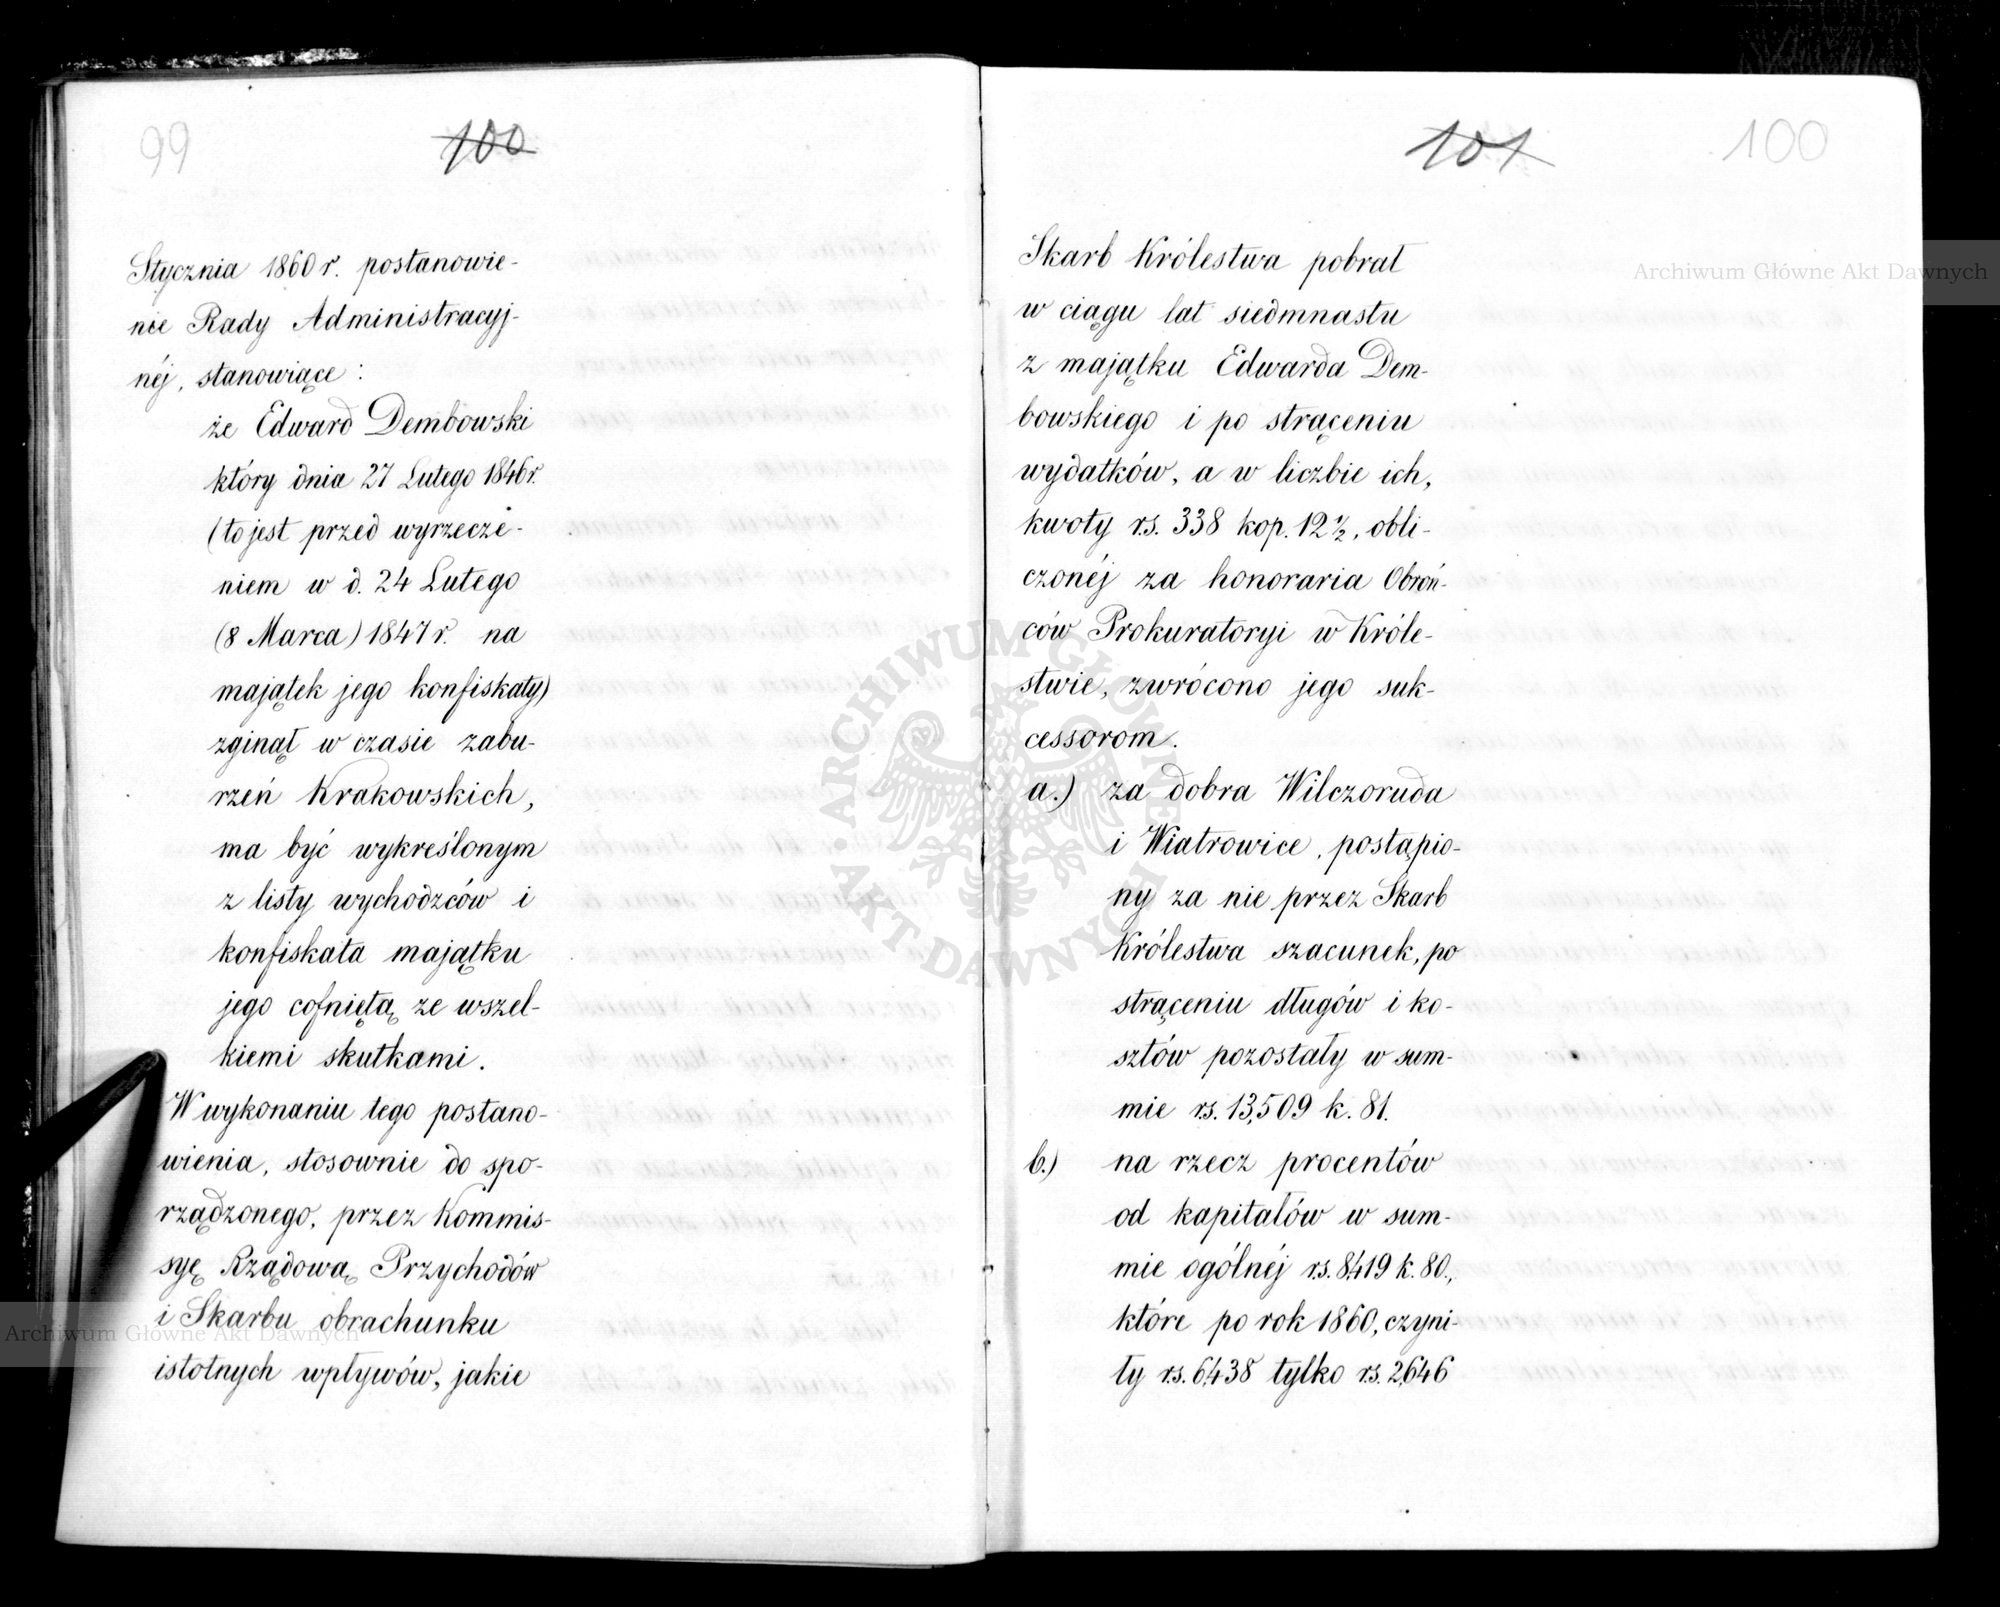 99
100
Stycznia 1860 r. postanowie-
nie Rady Administracyj-
néj, stanowiące:
że Edward Dembowski
który dnia 27 Lutego 1846 r.
(to jest przed wyrzecze-
niem w d. 24 Lutego
(8 Marca) 1847 r. na
majątek jego konfiskaty)
zginął w czasie zabu-
rzeń Krakowskich,
ma być wykreślonym
z listy wychodźców i
konfiskata majątku
jego cofniętą ze wszel-
kiemi skutkami.
W wykonaniu tego postano-
wienia, stosownie do spo-
rządzonego, przez Kommis-
syę Rządową Przychodów
i Skarbu obrachunku
istotnych wpływów, jakie
101
100
Skarb Królestwa pobrał
w ciągu lat siedmnastu
z majątku Edwarda Dem-
bowskiego i po strąceniu
wydatków, a w liczbie ich,
kwoty rs. 338 kop. 12 1/2, obli-
czonéj za honoraria Obroń-
ców Prokuratoryi w Króle-
stwie, zwrócono jego suk-
cessorom.
a.) za dobra Wilczoruda
i Wiatrowice, postąpio-
ny za nie przez Skarb
Królestwa szacunek, po
strąceniu długów i ko-
sztów pozostały w sum-
mie rs. 13,509 k. 81.
b.) na rzecz procentów
od kapitałów w sum-
mie ogólnéj rs. 8,419 k. 80.,
które po rok 1860, czyni-
ły rs. 6,438 tylko rs. 2,646
Archiwum Główne Akt Dawnych
Archiwum Główne Akt Dawnych
ARCHIWUM GŁÓWNE AKT DAWNYCH